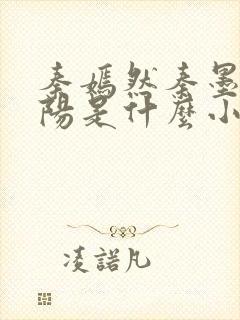 秦嫣然秦墨
陽是什麼小
凌諾凡